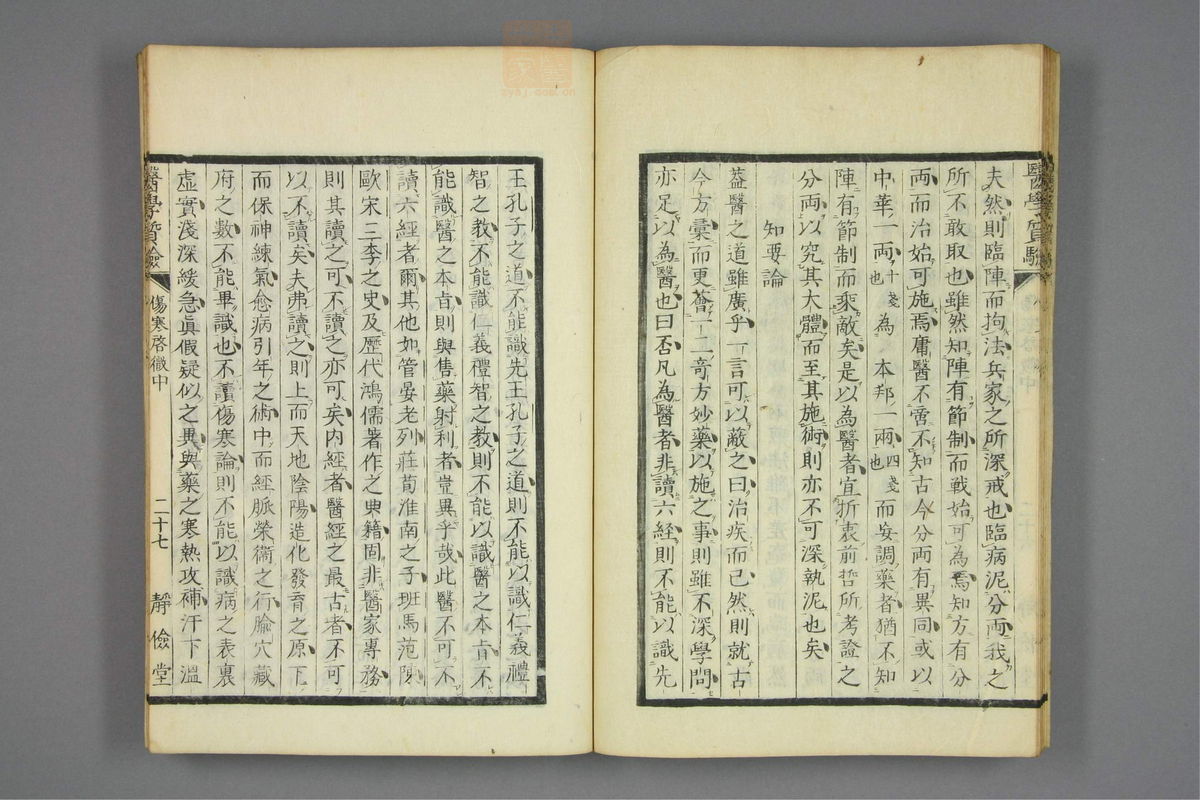 夫然則臨陣而拘法兵家之所深戒也臨病泥分兩我之
所不敢取也雖然知陣有節制而戰始可為焉知方有分
兩而治始可施焉庸醫不啻不知古今分兩有異同或以
中華一兩十戔也為本邦一兩四戔也而妄調藥者猶不知
陣有節制而乘敵矣是以為醫者宜折衷前哲所考證之
分兩以究其大體而至其施術則亦不可深執泥也矣
知要論
葢醫之道雖廣乎一言可以蔽之曰治疾而已然則就古
今方彙而更薈一二奇方妙藥以施之事則雖不深學問
亦足以為醫也曰否凡為醫者非讀六經則不能以識先
醫學質驗
王孔子之道不能識先王孔子之道則不能以識仁義禮
智之教不能識仁義禮智之教則不能以識醫之本肯不
能識醫之本肯則與售藥射利者豈異乎哉此醫不可不
讀六經者爾其他如管晏老列莊荀淮南之子班馬范陳
歐宋三李之史及歷代鴻儒著作之典籍固非醫家專務
則其讀之可不讀之亦可矣内經者醫經之最古者不可
以不讀矣夫弗讀之則上而天地陰陽造化發育之原下
而保神練氣愈病引年之術中而經脈榮衞之行腧穴藏
府之數不能畢識也不讀傷寒論則不能以識病之表裏
虛實淺深緩急眞假疑似之異與藥之寒熱攻補汗下溫
醫學質驗
傷寒啓微中
二十七
靜儉堂